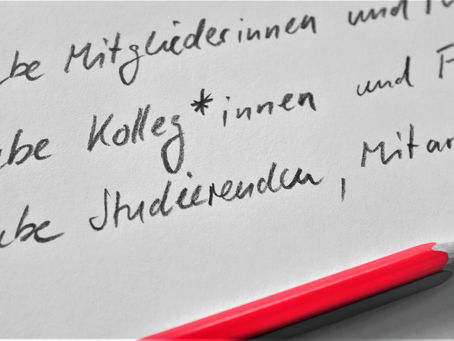 be Mitgliederinnen und
ebe Kolleg*innen und F
ebe Studierenden, Mitar